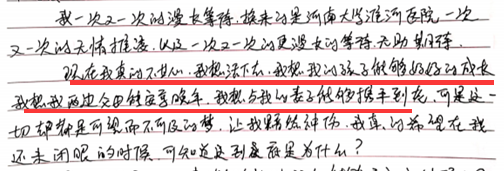 我一次又一次的漫长等待,换来的是河南大学淮河医院一次
又一次的无情推凌,以及一次又一次的更漫长的等待,无助期待.
现在我真的不甘心,我想活下去,我想我的孩子能够好好的成长
我想我两边父母能安享晚年,我想与我的妻子能够携手到老,可是这一
切却都是可望而不可及的梦,让我黯然神伤,我真的希望在我
还未闭眼的时候,可知道这到底是为什么?